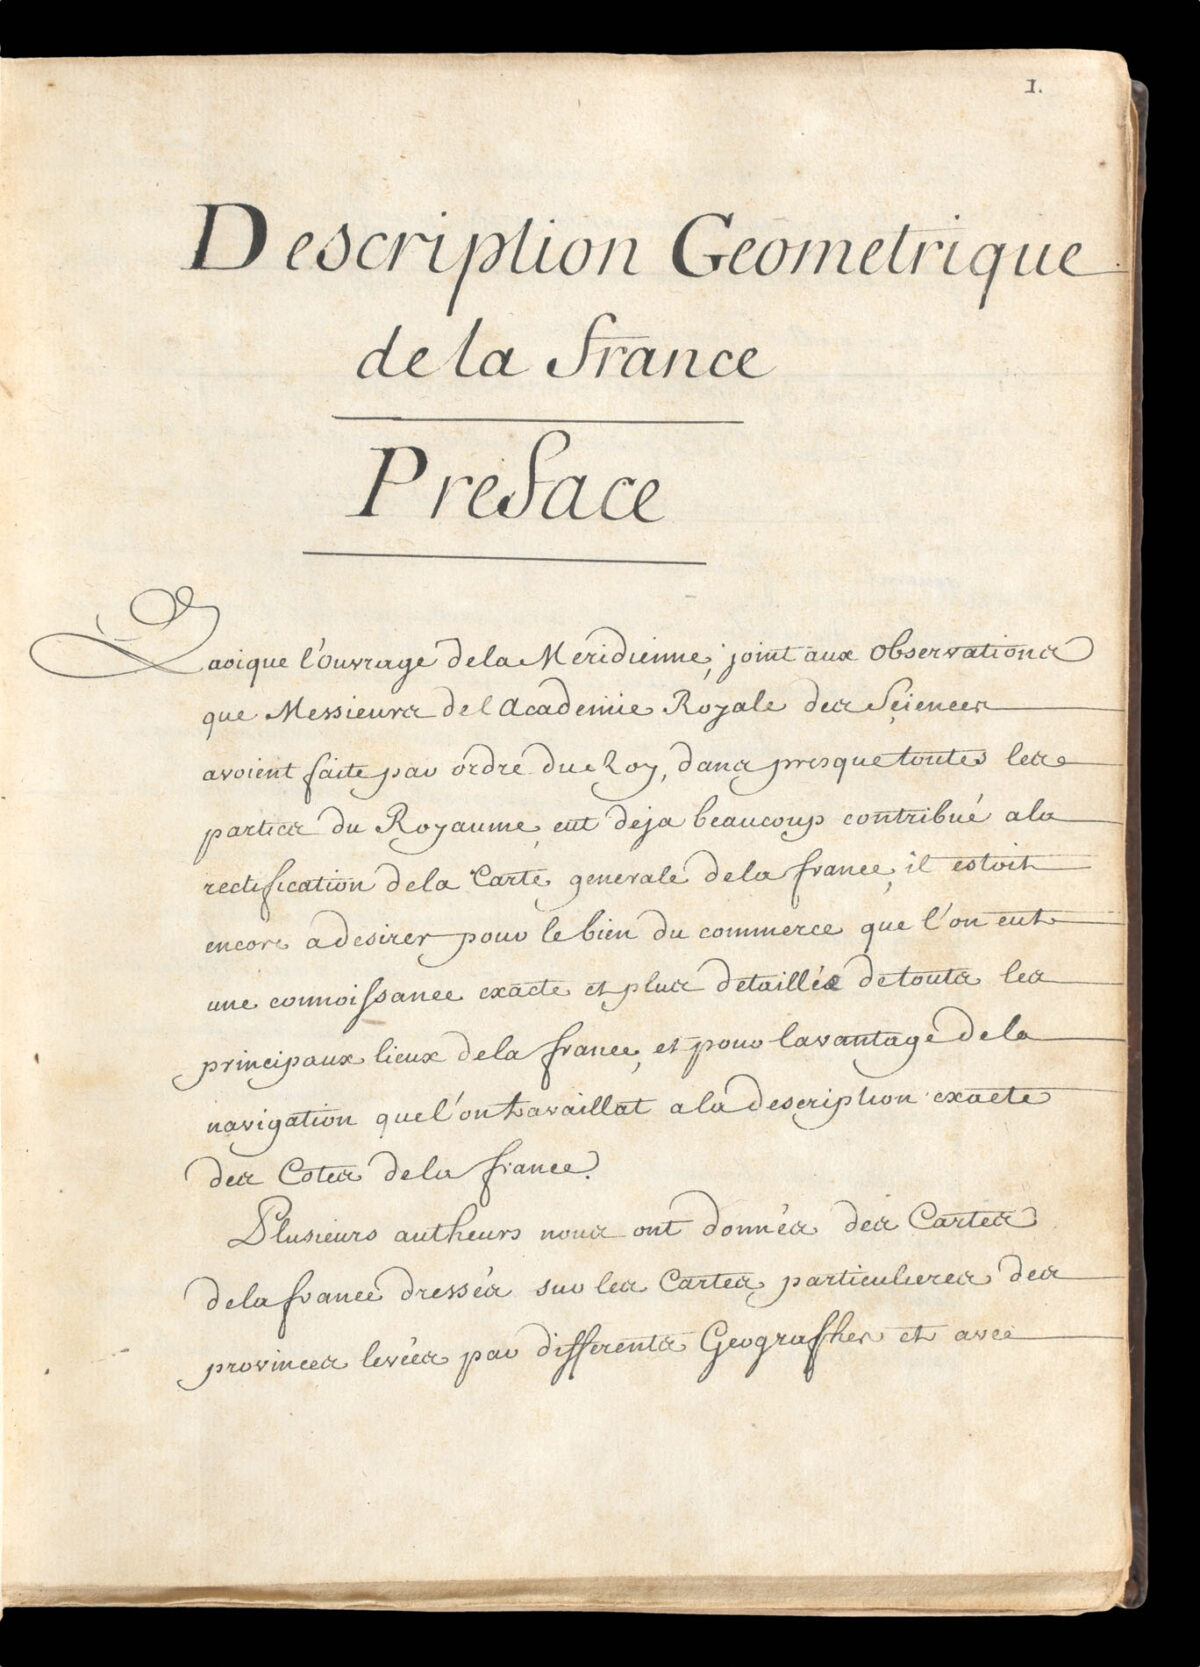 1.
Description Geometrique
de la france
Preface
Quoique l'ouvrage dela Meridienne, joint aux observations
que Messieurs de l'Academie Royale des Sciences
avoient faite par ordre du Roy, dans presque toutes les
parties du Royaume, eut deja beaucoup contribué ala
rectification dela Carte generale dela france, il estoit
encore adesirer pour le bien du commerce que l'on eut
une connoissance exacte et plus detaillée detouts les
principaux lieux dela france, et pour lavantage dela
navigation quel'on travaillat ala description exacte
des Cotes dela france.
Plusieurs autheurs nous ont donnés des Cartes
dela france dressés sur les Cartes particulieres des
provinces levées par differents Geographes et avec